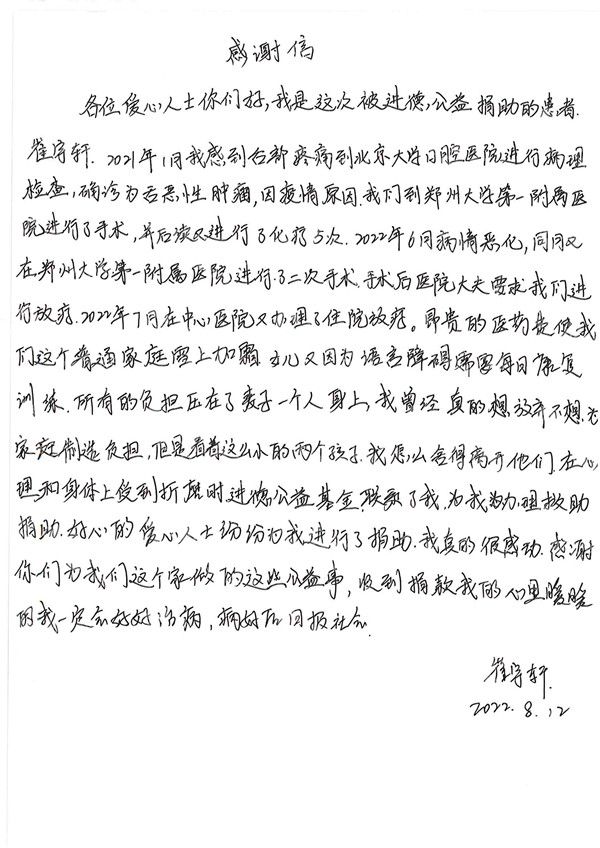 感谢信
各位爱心人士你们好,我是这次被进德公益捐助的患者.
崔宇轩. 2021年1月我感到舌部疼痛到北京大学口腔医院进行病理
检查,确诊为舌恶性肿瘤,因疫情原因.我们到郑州大学第一附属医
院进行了手术,并后续又进行了化疗5次. 2022年6月病情恶化,同月又
在郑州大学第一附属医院进行了二次手术.手术后医院大夫要求我们进
行放疗.2022年7月在中心医院又办理了住院放疗。昂贵的医药费使我
们这个普通家庭雪上加霜 女儿又因为语言障碍需要每日康复
训练.所有的负担压在了妻子一个人身上,我曾经真的想放弃不想给
家庭制造负担,但是看着这么小的两个孩子.我怎么舍得离开他们.在心
理和身体上受到折磨时进德公益基金联系了我,为我办理救助
捐助.好心的爱心人士纷纷为我进行了捐助.我真的很感动.感谢
你们为我们这个家做的这些公益事,收到捐款我的心里暖暖
的我一定会好好治病,病好后回报社会.
崔宇轩.
2022.8.12